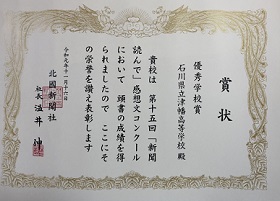 賞状
優秀学校賞
石川県立津幡高等学校 殿
貴校は 第十五回「新聞
読んで」感想文コンクール
において 頭書の成績を得
られましたので ここにそ
の栄誉を讃え表彰します
令和元年十二月十六日
北國新聞社
社長 温井 伸